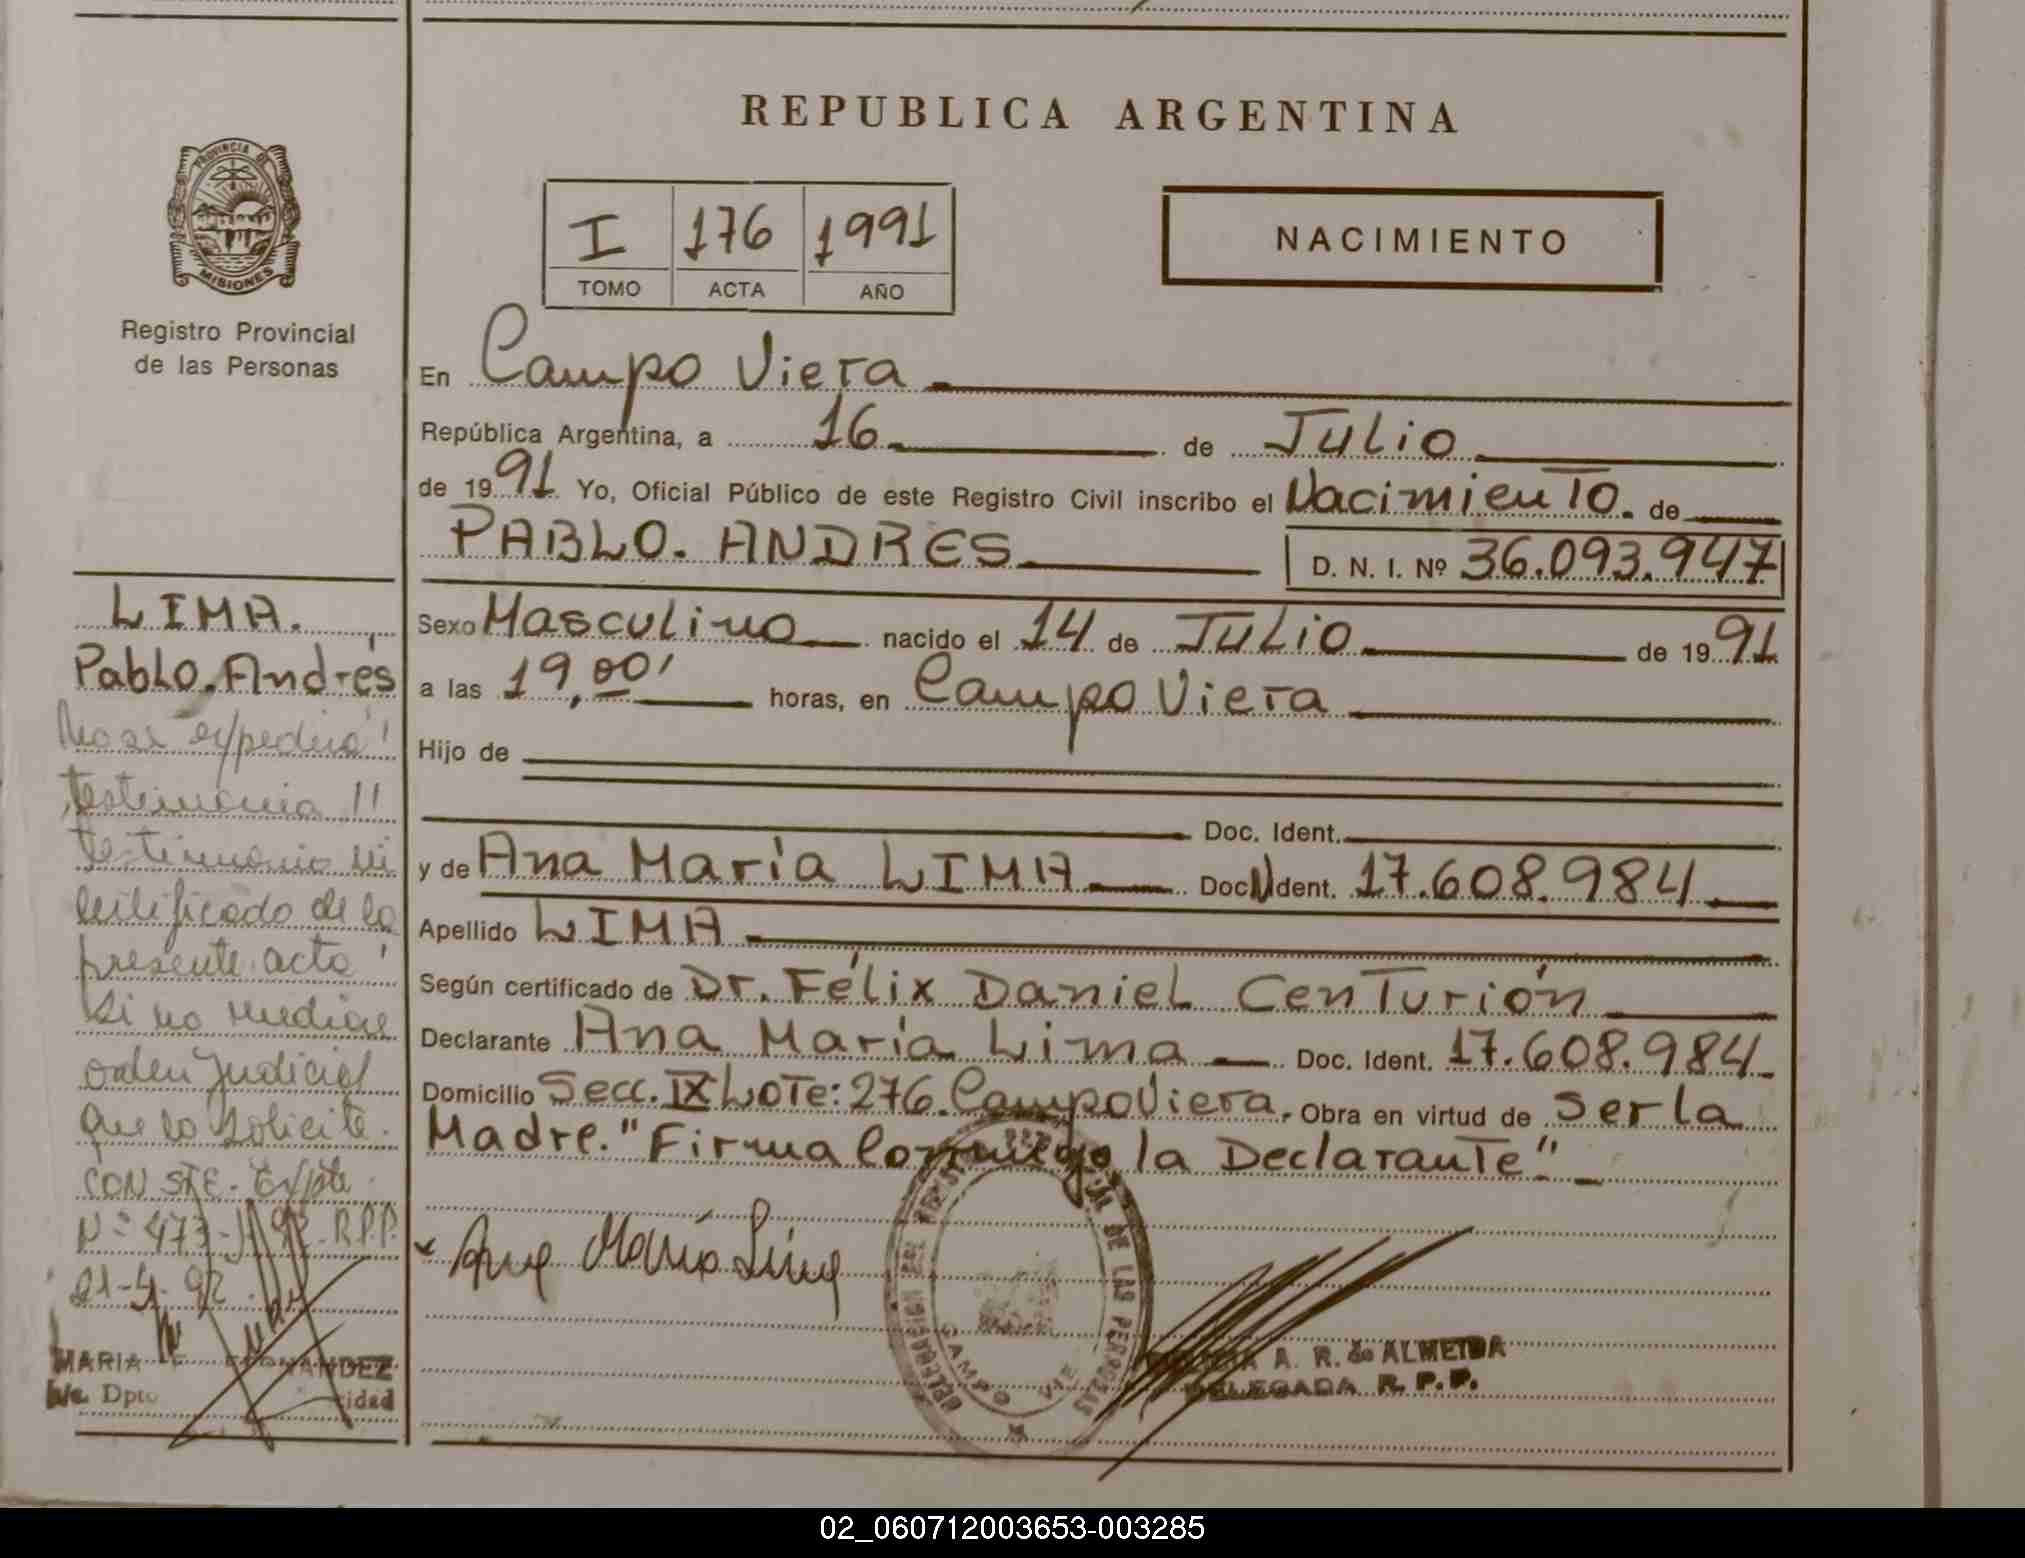 REPUBLICA ARGENTINA
PROVINCIA DE
MISIONES
Registro Provincial
de las Personas
I 176 1991
TOMO ACTA AÑO
NACIMIENTO
En Campo Viera
República Argentina, a 16 de Julio
de 1991 Yo, Oficial Público de este Registro Civil inscribo el Nacimiento. de
PABLO. ANDRES D. N. I. Nº 36.093.947
Sexo Masculino nacido el 14 de Julio de 1991
a las 19,00' horas, en Campo Viera
Hijo de
Doc. Ident.
y de Ana María LIMA Doc. Ident. 17.608.984
Apellido LIMA
Según certificado de Dr. Félix Daniel Centurión
Declarante Ana María Lima Doc. Ident. 17.608.984
Domicilio Secc. IX Lote: 276. Campo Viera. Obra en virtud de ser la
Madre. "Firma Conmigo la Declarante"
LIMA.
Pablo. Andrés
No se expedirá
testimonio !!
testimonio ni
certificado de la
presente acta
Si no mediase
orden Judicial
que lo solicite.
CONSTE. Expte
Nº 473- 92-R.P.P.
21-4-92
MARIA FERNANDEZ
Dpto
A. R. de ALMEIDA
DELEGADA R. P. P.
DE LAS PERSONAS
CAMPO VIE
02_060712003653-003285